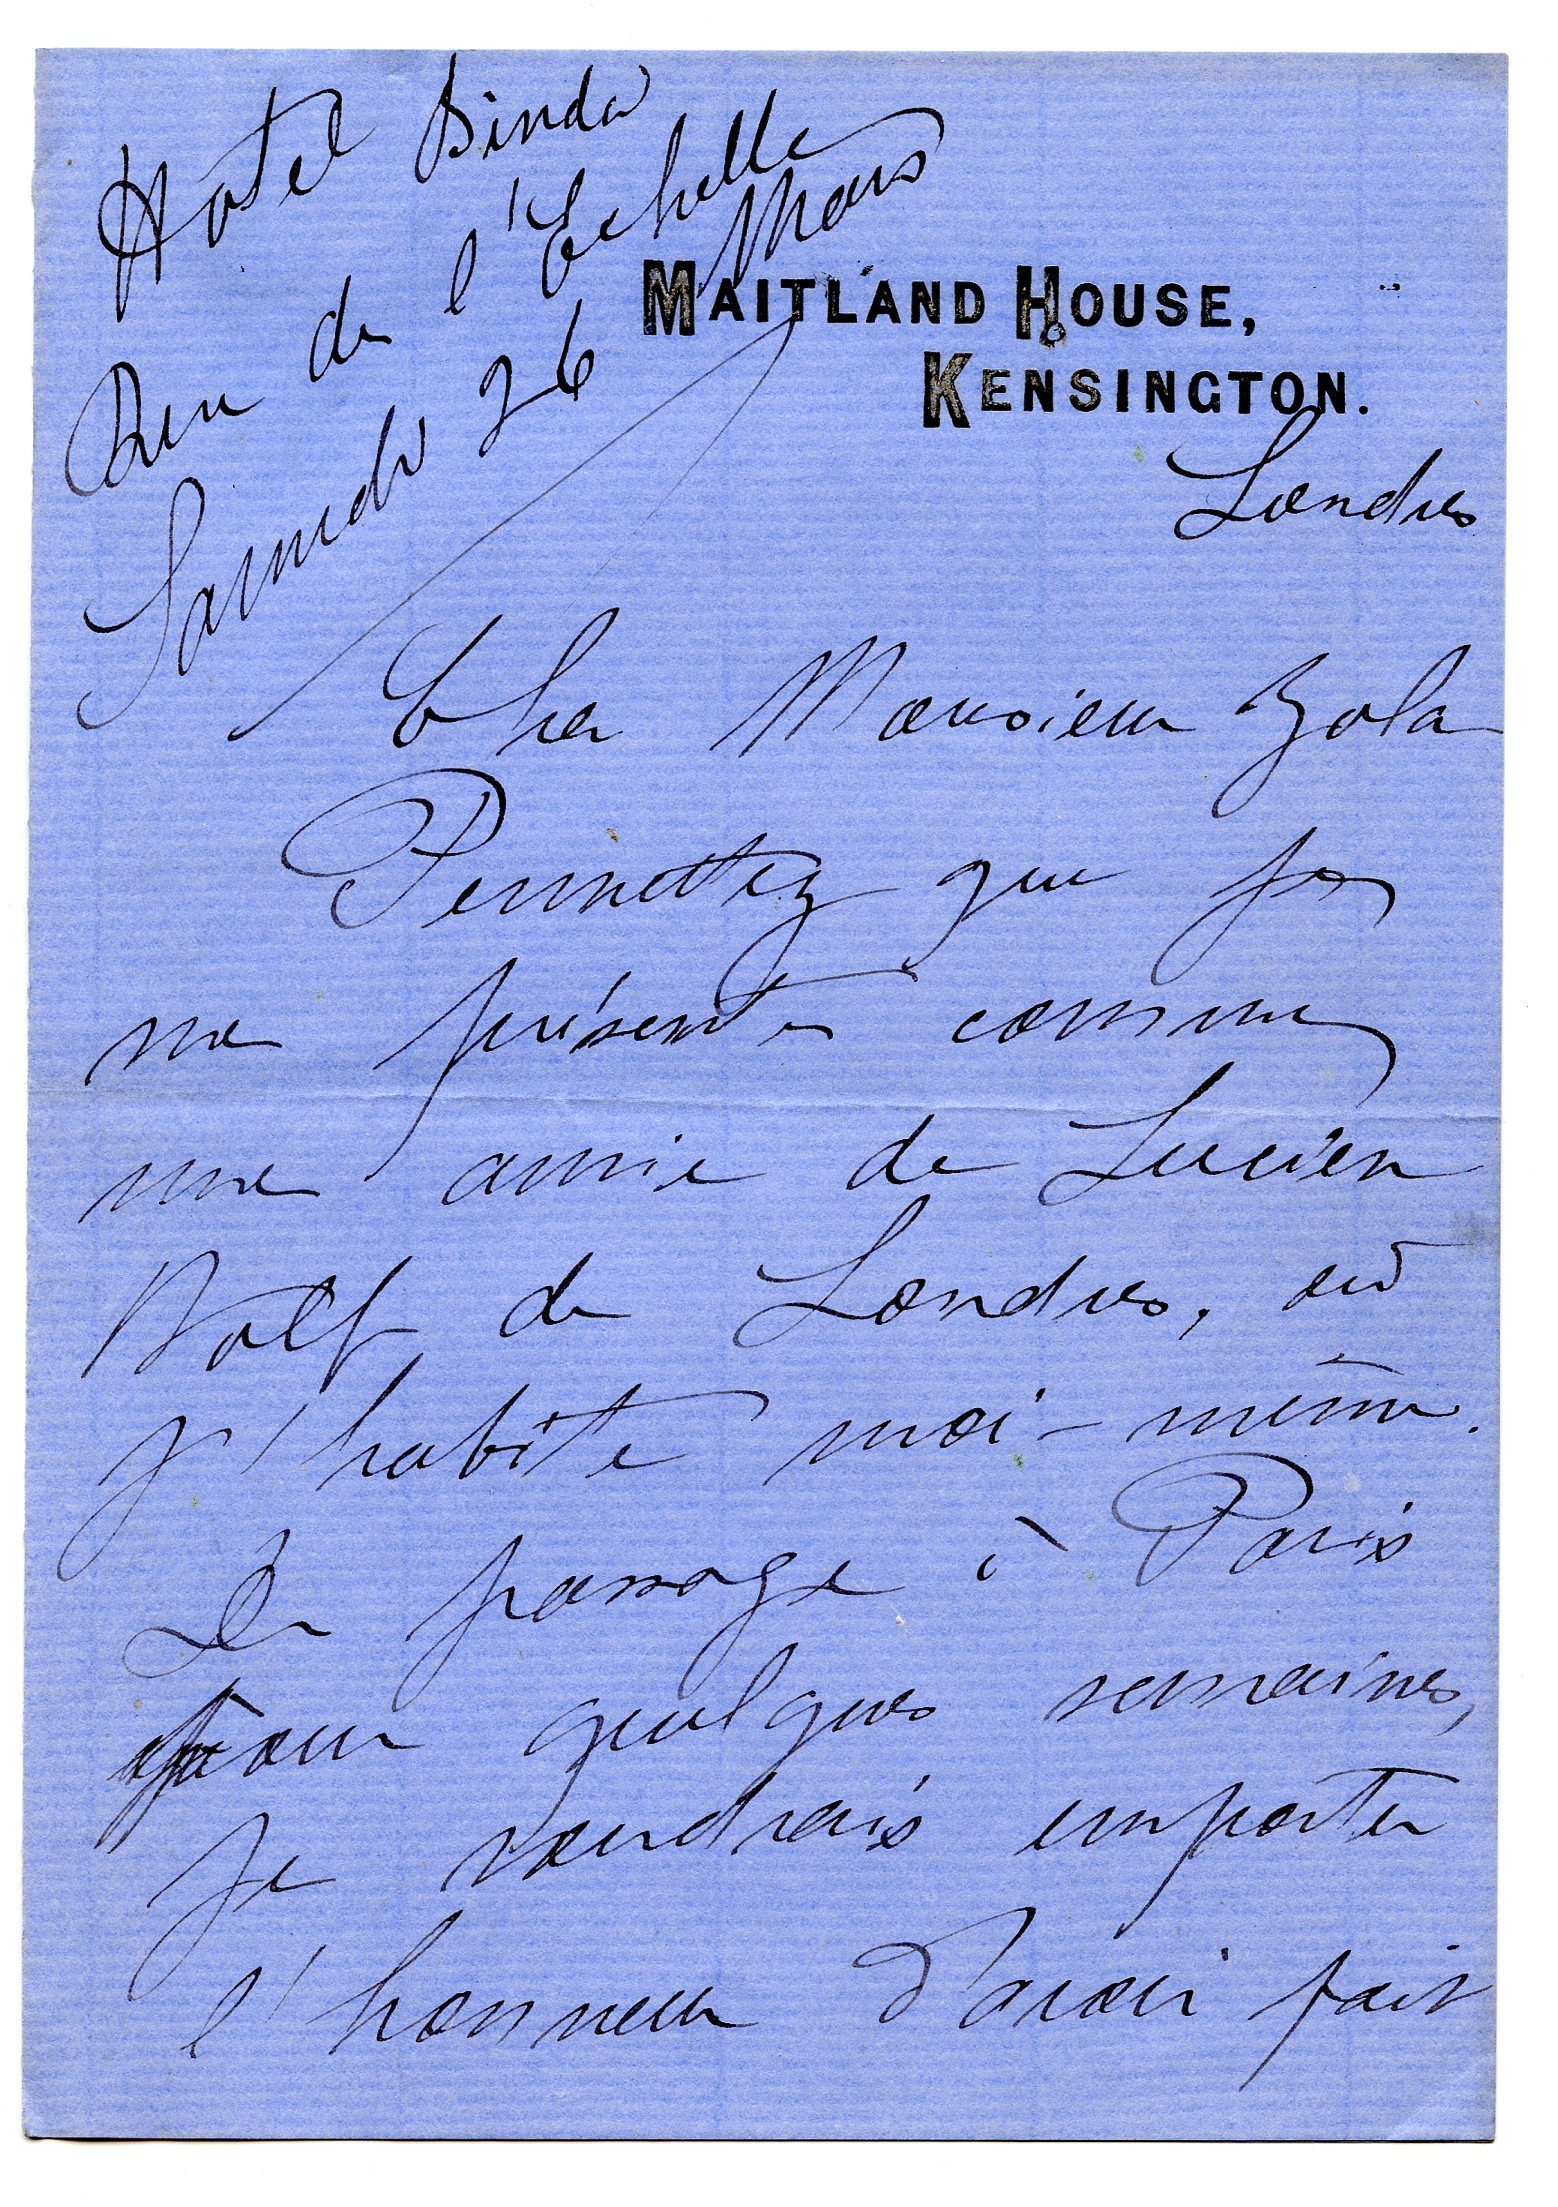 Hotel Binda
Rue de l'Echelle
Samedi 26 Mars
MAITLAND HOUSE,
KENSINGTON.
Londres
Cher Monsieur Zola
Permettez que je
me présente comme
une amie de Lucien
Wolf de Londres, où
j'habite moi-même.
De passage à Paris
pour quelques semaines,
je voudrais emporter
l'honneur d'avoir fait